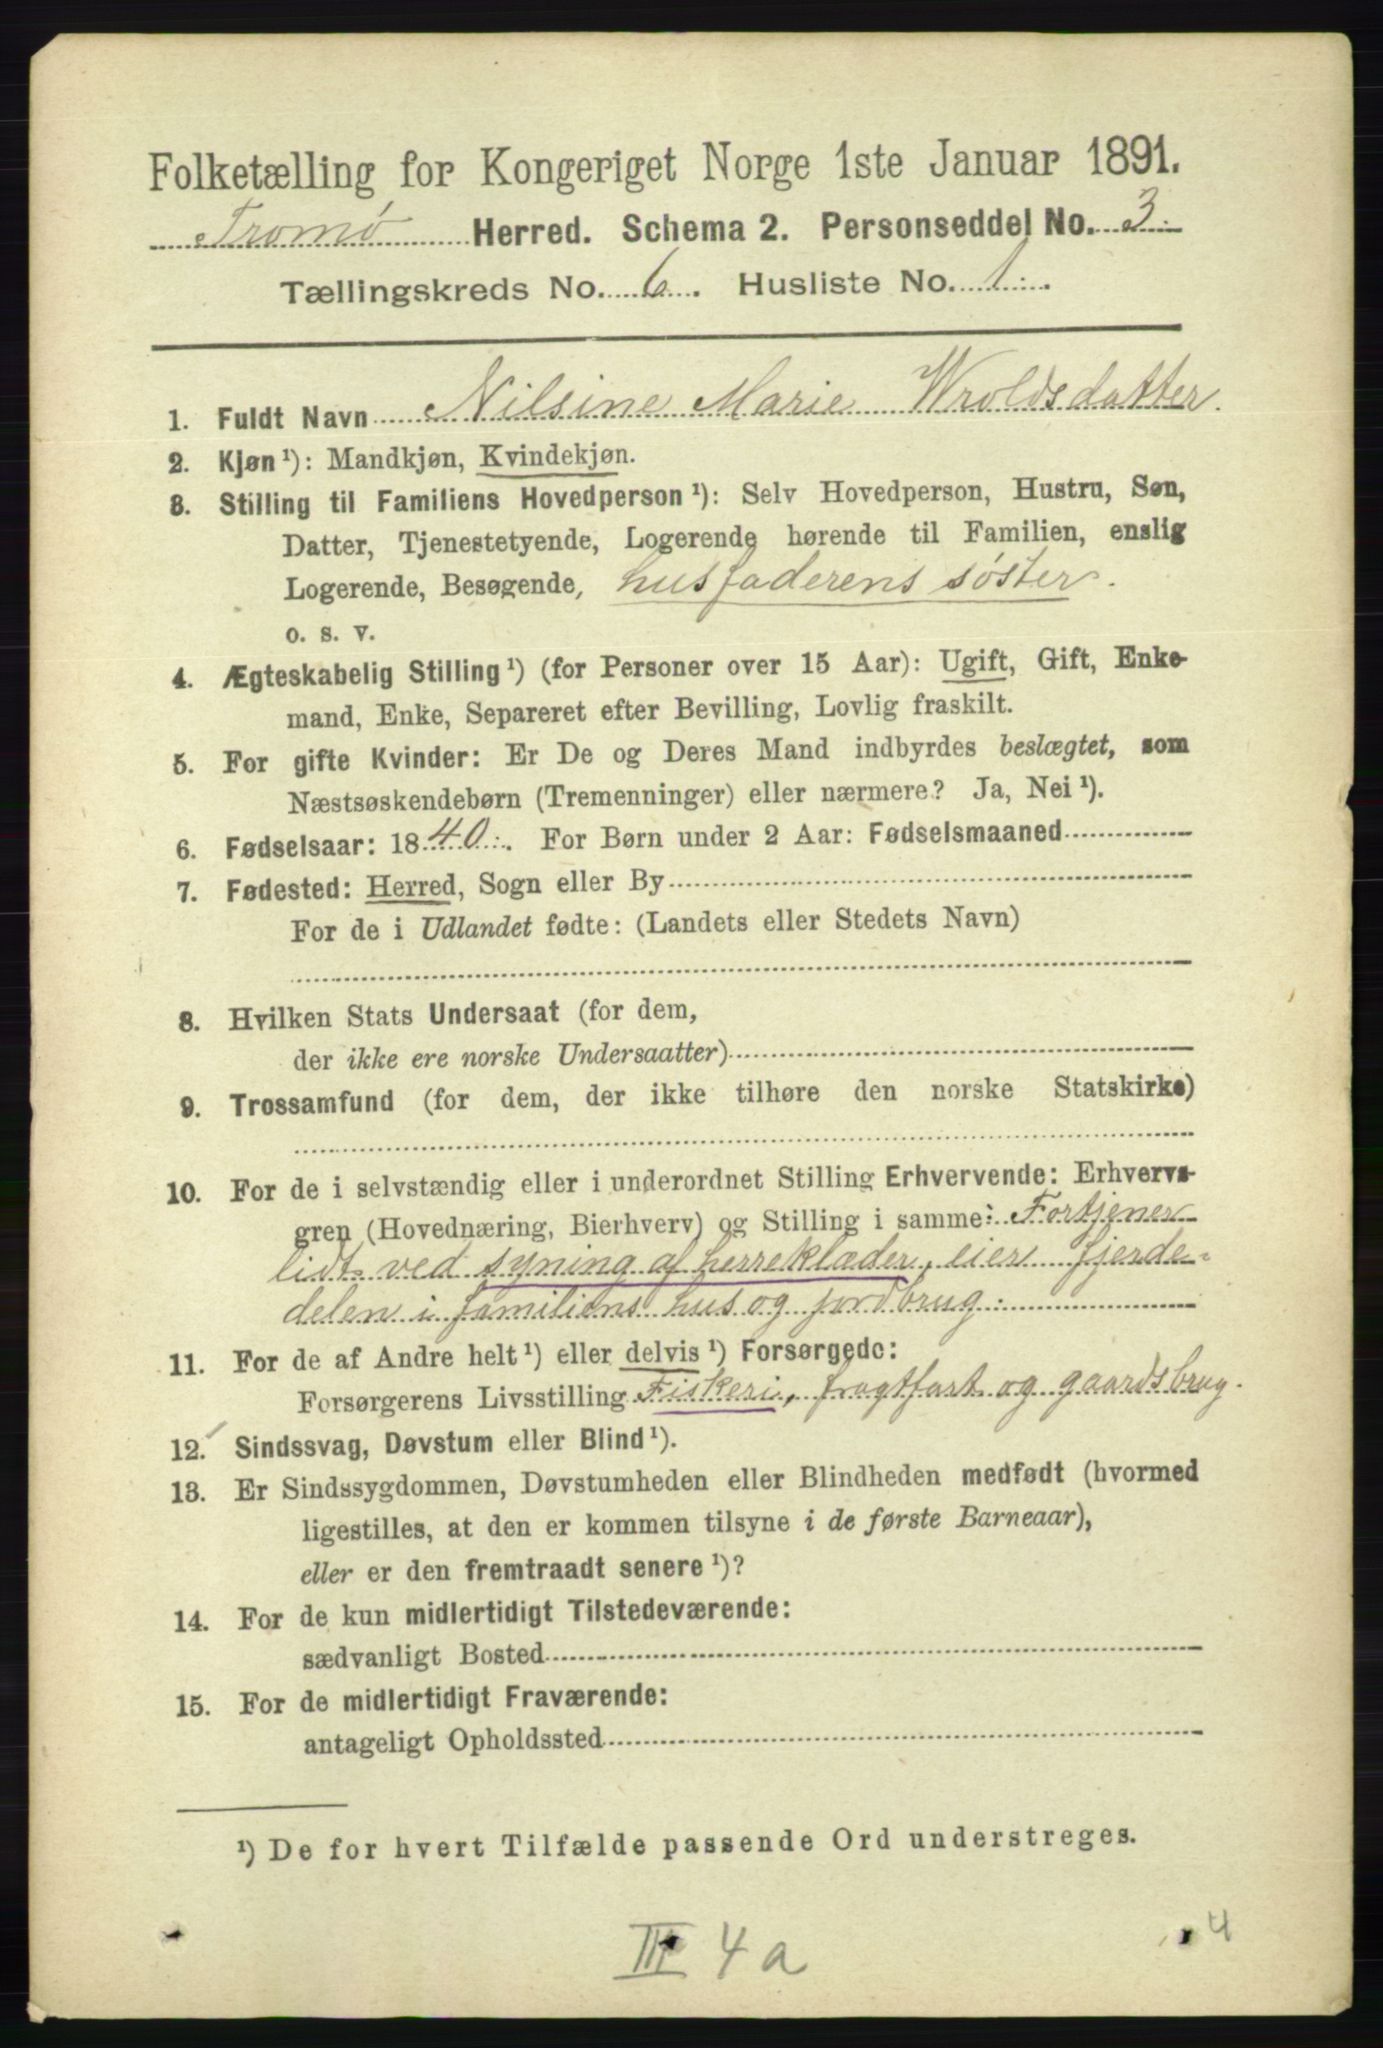 Folketælling for Kongeriget Norge 1ste Januar 1891.
Tromø Herred. Schema 2. Personseddel No. 3.
Tællingskreds No. 6. Husliste No. 1.
1. Fuldt Navn Nilsine Marie Wroldsdatter.
2. Kjøn¹): Mandkjøn, Kvindekjøn.
3. Stilling til Familiens Hovedperson¹): Selv Hovedperson, Hustru, Søn,
Datter, Tjenestetyende, Logerende hørende til Familien, enslig
Logerende, Besøgende, husfaderens søster.
o. s. v.
4. Ægteskabelig Stilling¹) (for Personer over 15 Aar): Ugift, Gift, Enke-
mand, Enke, Separeret efter Bevilling, Lovlig fraskilt.
5. For gifte Kvinder: Er De og Deres Mand indbyrdes beslægtet, som
Næstsøskendebørn (Tremenninger) eller nærmere? Ja, Nei¹).
6. Fødselsaar: 1840. For Børn under 2 Aar: Fødselsmaaned
7. Fødested: Herred, Sogn eller By
For de i Udlandet fødte: (Landets eller Stedets Navn)
8. Hvilken Stats Undersaat (for dem,
der ikke ere norske Undersaatter)
9. Trossamfund (for dem, der ikke tilhøre den norske Statskirke)
10. For de i selvstændig eller i underordnet Stilling Erhvervende: Erhvervs-
gren (Hovednæring, Bierhverv) og Stilling i samme: Fortjener
lidt ved syning af herreklæder, eier fjerde-
delen i familiens hus og jordbrug.
11. For de af Andre helt¹) eller delvis¹) Forsørgede:
Forsørgerens Livsstilling Fiskeri, fragtfart og gaardsbrug.
12. Sindssvag, Døvstum eller Blind¹).
13. Er Sindssygdommen, Døvstumheden eller Blindheden medfødt (hvormed
ligestilles, at den er kommen tilsyne i de første Barneaar),
eller er den fremtraadt senere¹)?
14. For de kun midlertidigt Tilstedeværende:
sædvanligt Bosted
15. For de midlertidigt Fraværende:
antageligt Opholdssted
¹) De for hvert Tilfælde passende Ord understreges.
III 4a
4